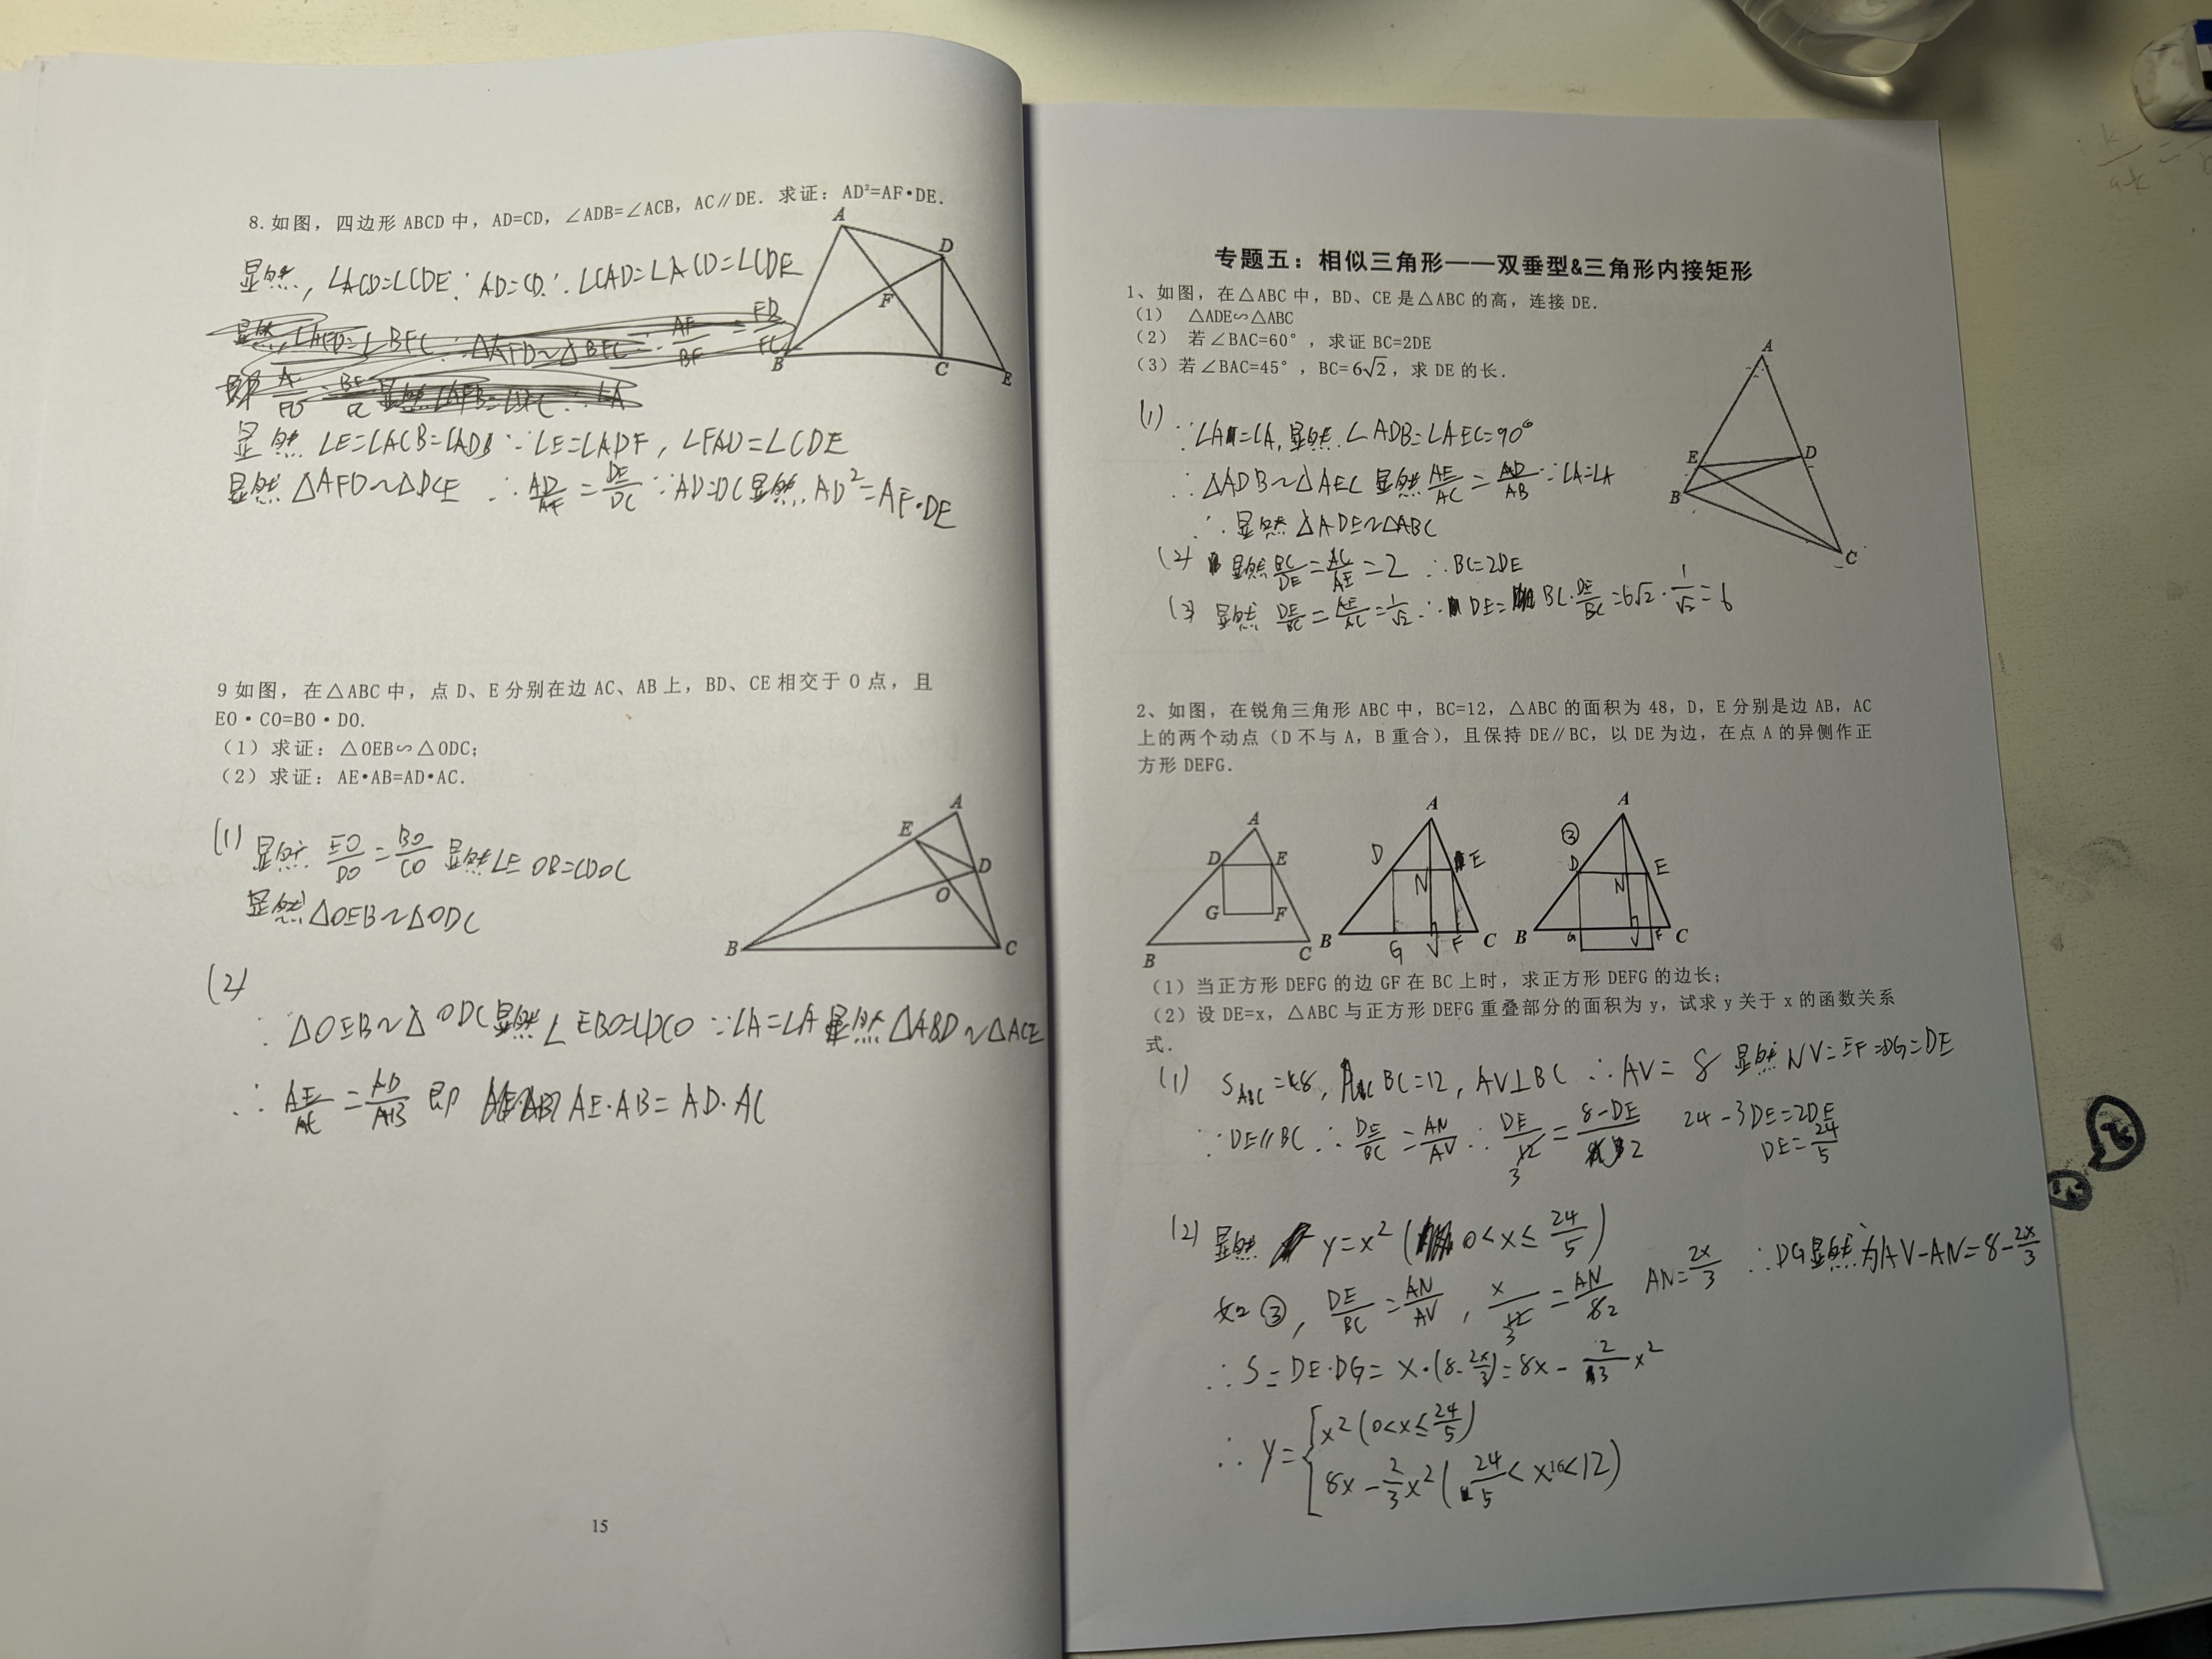 8.如图，四边形 ABCD 中，AD=CD，∠ADB=∠ACB，AC∥DE. 求证：AD²=AF•DE.
A
D
F
B
C
E
显然，∠ACD=∠CDE ∵ AD=CD ∴ ∠CAD=∠ACD=∠CDE
显然 ∠E=∠ACB=∠ADB ∵ ∠E=∠ADF，∠FAD=∠CDE
显然 △AFD~△DCE ∴ AD/AF = DE/DC ∵ AD=DC 显然 AD²=AF•DE
9 如图，在△ABC 中，点 D、E 分别在边 AC、AB 上，BD、CE 相交于 O 点，且
EO•CO=BO•DO.
（1）求证：△OEB∽△ODC；
（2）求证：AE•AB=AD•AC.
A
E
D
O
B
C
(1) 显然 EO/DO = BO/CO 显然∠EOB=∠DOC
显然 △OEB~△ODC
(2)
∵ △OEB~△ODC 显然∠EBO=∠DCO ∵∠A=∠A 显然△ABD~△ACE
∴ AE/AC = AD/AB 即 AE·AB=AD·AC
15
专题五：相似三角形——双垂型&三角形内接矩形
1、如图，在△ABC 中，BD、CE 是△ABC 的高，连接 DE.
（1） △ADE∽△ABC
（2） 若∠BAC=60°，求证 BC=2DE
（3）若∠BAC=45°，BC=6√2，求 DE 的长.
A
E
D
B
C
(1) ∵∠A=∠A, 显然 ∠ADB=∠AEC=90°
∴ △ADB~△AEC 显然 AE/AC = AD/AB ∵∠A=∠A
∴ 显然 △ADE~△ABC
(2) 显然 BC/DE = AC/AE = 2 ∴ BC=2DE
(3) 显然 DE/BC = AE/AC = 1/√2 ∴ DE= BC·DE/BC=6√2·1/√2=6
2、如图，在锐角三角形 ABC 中，BC=12，△ABC 的面积为 48，D，E 分别是边 AB，AC
上的两个动点（D 不与 A，B 重合），且保持 DE∥BC，以 DE 为边，在点 A 的异侧作正
方形 DEFG.
A
D
E
G
F
B
C
A
D
E
N
B
G
V
F
C
③
A
D
E
N
B
G
V
F
C
（1）当正方形 DEFG 的边 GF 在 BC 上时，求正方形 DEFG 的边长；
（2）设 DE=x，△ABC 与正方形 DEFG 重叠部分的面积为 y，试求 y 关于 x 的函数关系
式.
(1) S ABC=48, BC=12, AV⊥BC ∴ AV= 8 显然 NV=EF=DG=DE
∵ DE//BC ∴ DE/BC = AN/AV ∴ DE/3 = (8-DE)/2 24-3DE=2DE
DE=24/5
(2) 显然 y=x² (0<x≤24/5)
如③, DE/BC = AN/AV, x/3 = AN/2 AN=2x/3 ∴ DG显然为AV-AN=8-2x/3
∴ S=DE·DG= x·(8-2x/3)=8x-2/3x²
∴ y={ x² (0<x≤24/5)
8x-2/3x² (24/5<x<12)